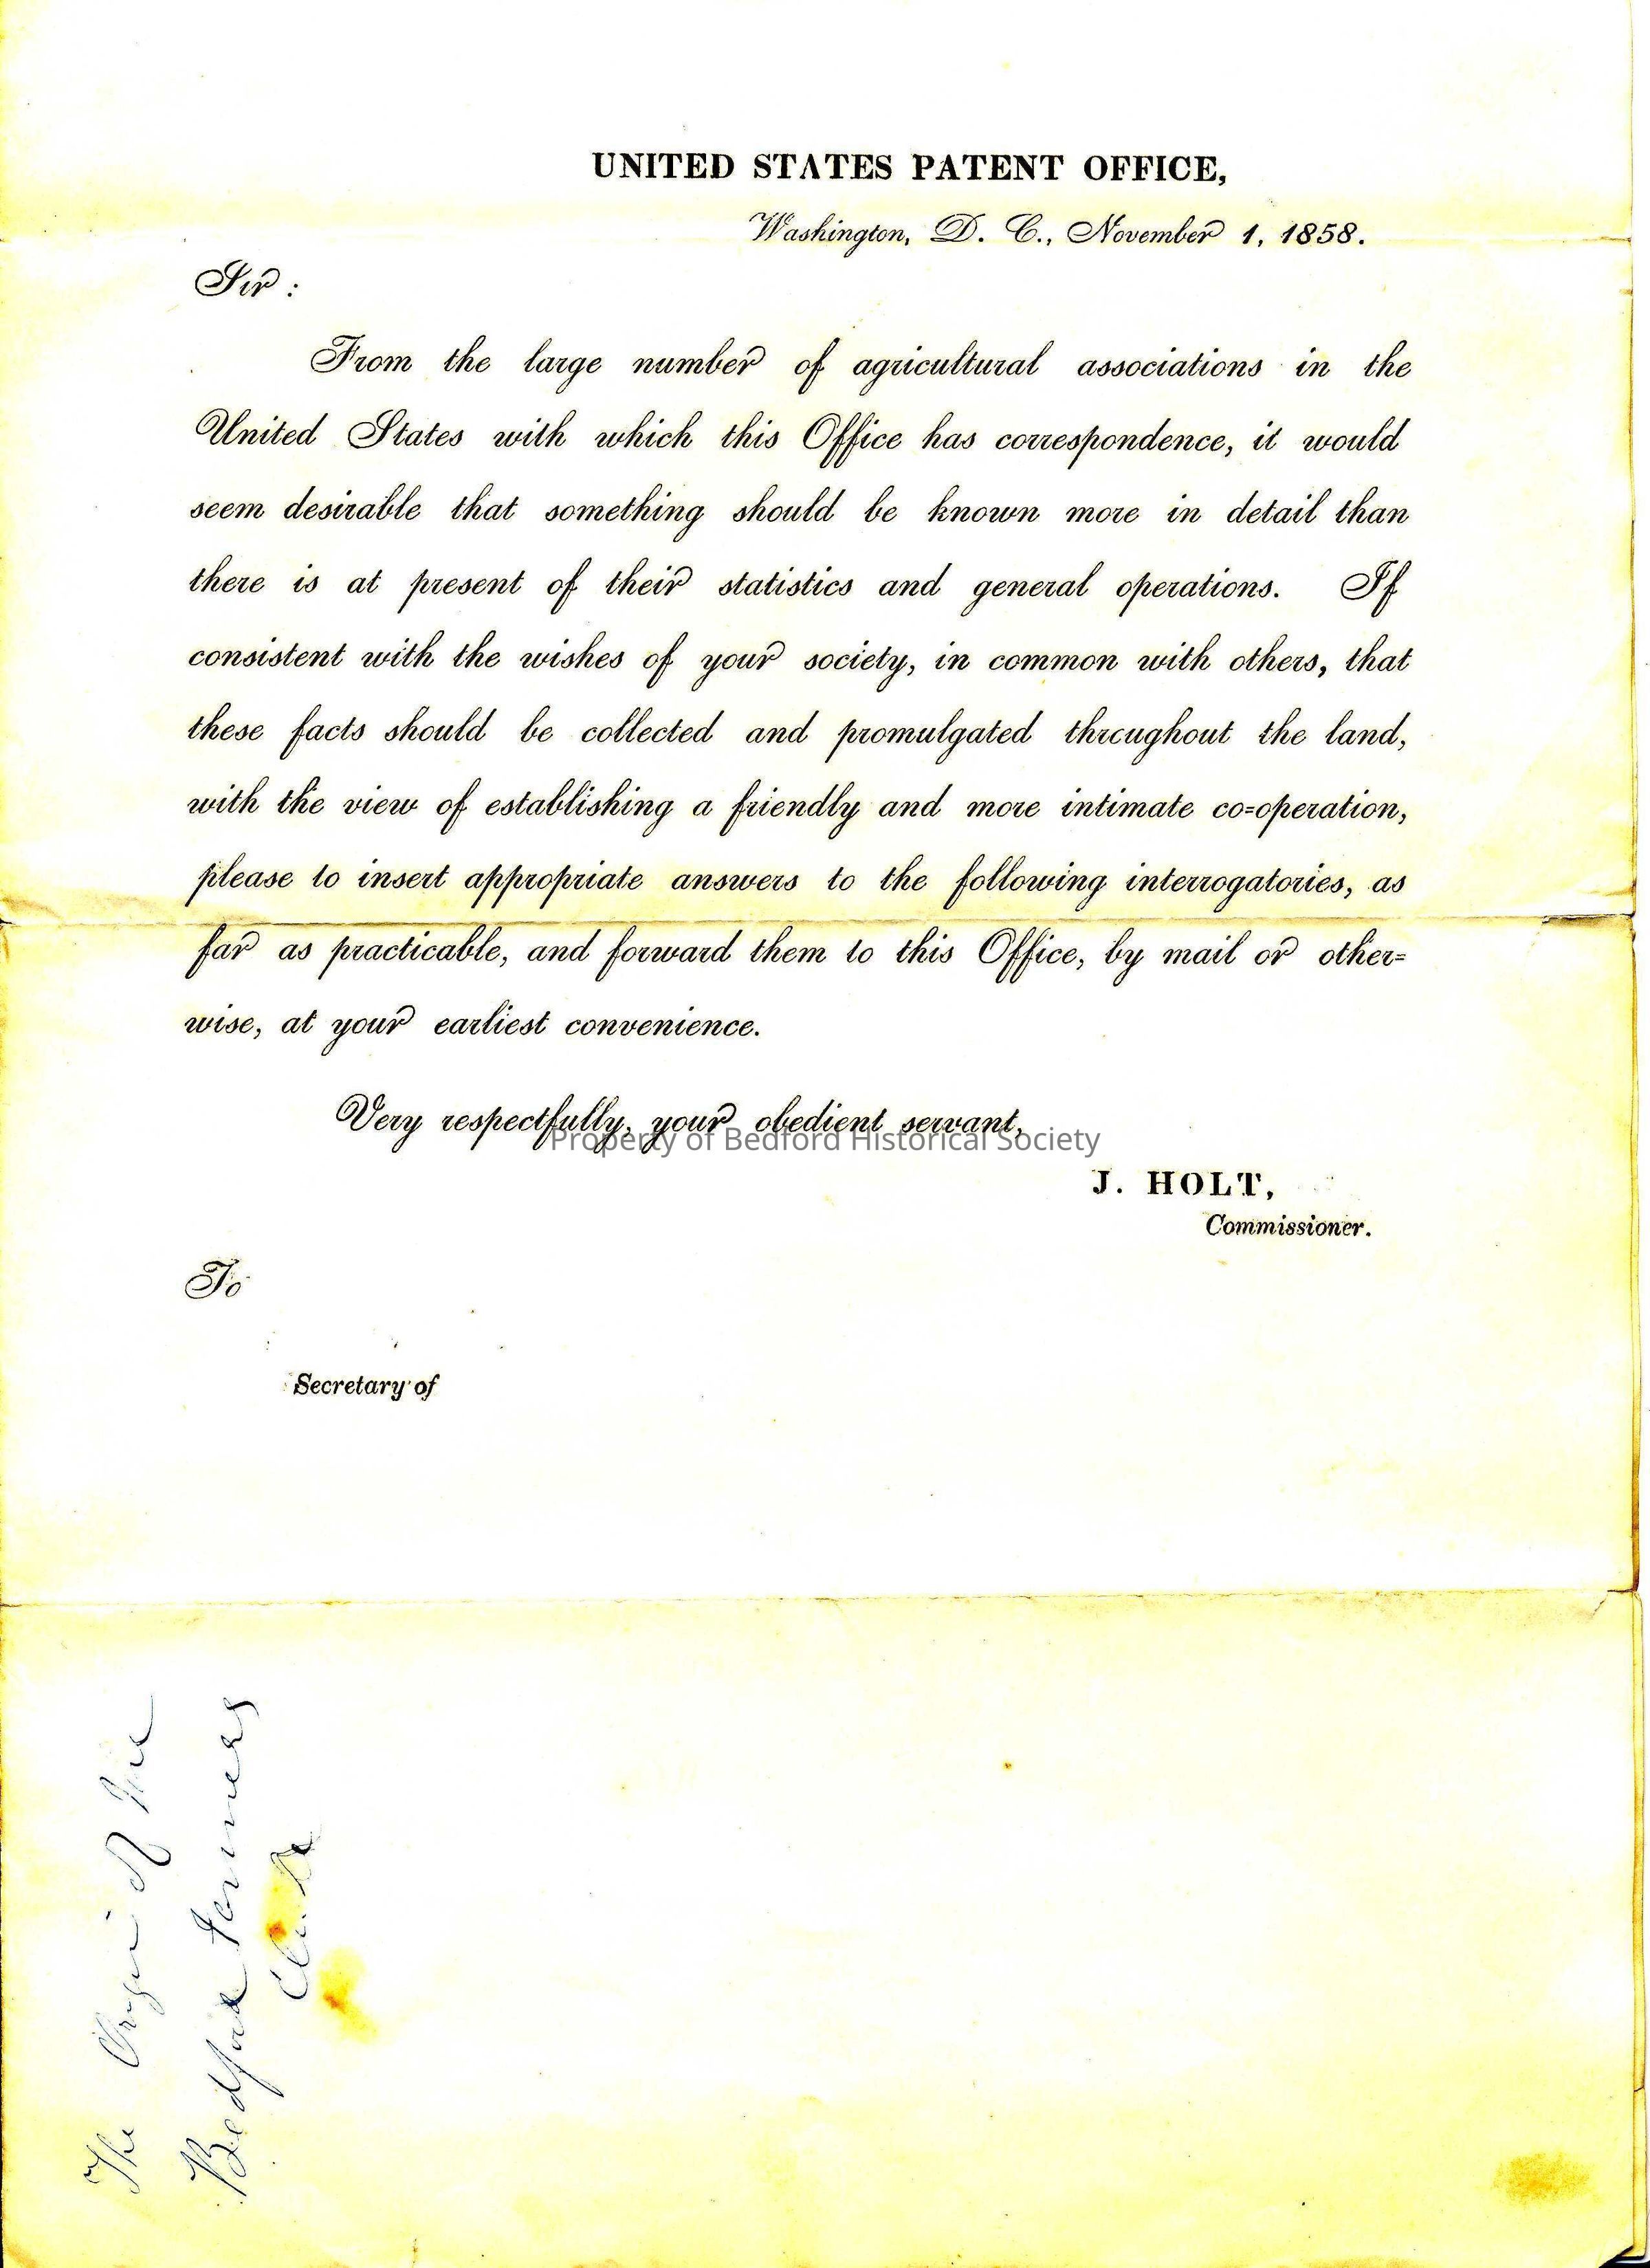 UNITED STATES PATENT OFFICE,
Washington, D. C., November 1, 1858.
Sir :
From the large number of agricultural associations in the
United States with which this Office has correspondence, it would
seem desirable that something should be known more in detail than
there is at present of their statistics and general operations. If
consistent with the wishes of your society, in common with others, that
these facts should be collected and promulgated throughout the land,
with the view of establishing a friendly and more intimate co=operation,
please to insert appropriate answers to the following interrogatories, as
far as practicable, and forward them to this Office, by mail or other=
wise, at your earliest convenience.
Very respectfully, your obedient servant,
Property of Bedford Historical Society
J. HOLT,
Commissioner.
To
Secretary of
The Origin of the
Bedford Farmers
Club